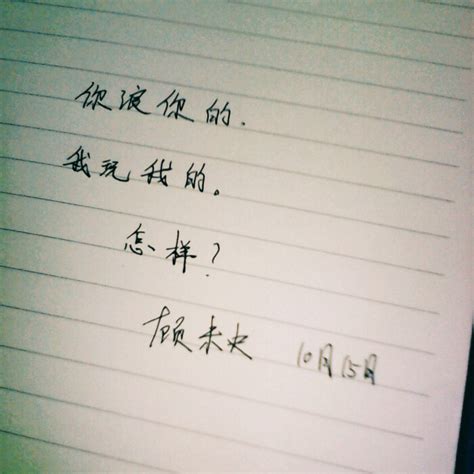 你浪你的.
我玩我的。
怎样?
顾未央 10月15日